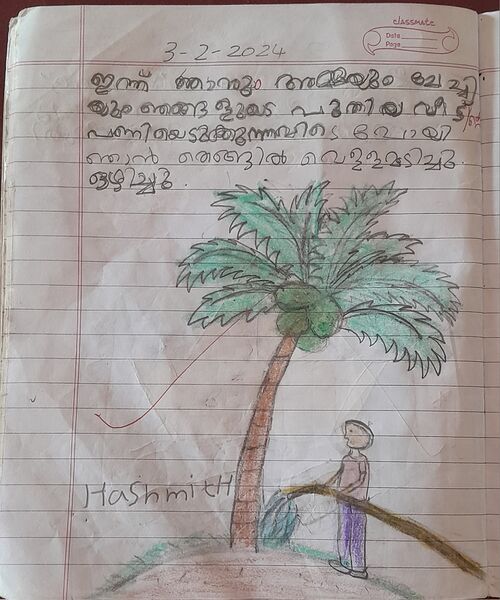 classmate
Date
Page
3-2-2024
ഇന്ന് ഞാനും അമ്മയും ചേച്ചി
യും ഞങ്ങളുടെ പുതിയ വീട്
പണിയെടുക്കുന്നവിടെ പോയി
ഞാൻ തെങ്ങിൽ വെള്ളമടിച്ചു.
ഒഴിച്ചു.
Hashmith